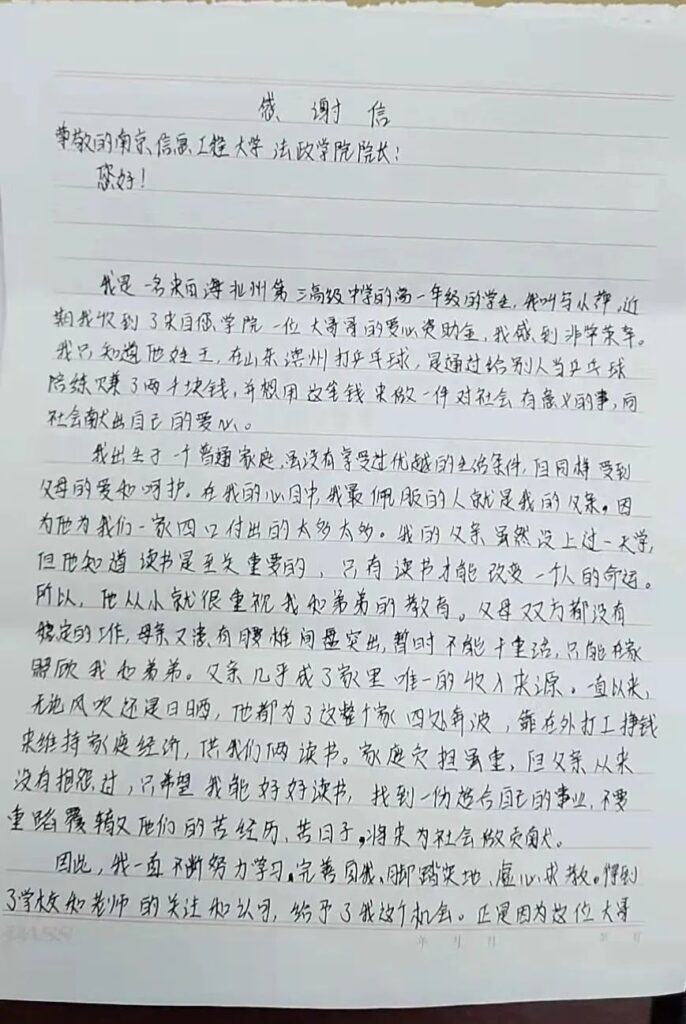 感谢信
尊敬的南京信息工程大学法政学院院长:
您好!
我是一名来自海北州第三高级中学的高一年级的学生,我叫马从萍。近
期我收到了来自您学院一位大哥哥的爱心资助金,我感到非常荣幸。
我只知道他姓王,在山东滨州打乒乓球,是通过给别人当乒乓球
陪练赚了两千块钱,并想用这笔钱来做一件对社会有意义的事,向
社会献出自己的爱心。
我出生于一个普通家庭,虽没有享受过优越的生活条件,但同样受到
父母的爱和呵护。在我的心目中,我最佩服的人就是我的父亲。因
为他为我们一家四口付出的太多太多。我的父亲虽然没上过一天学,
但他知道读书是至关重要的,只有读书才能改变一个人的命运。
所以,他从小就很重视我和弟弟的教育。父母双方都没有
稳定的工作,母亲又患有腰椎间盘突出,暂时不能干重活,只能在家
照顾我和弟弟。父亲几乎成了家里唯一的收入来源。一直以来,
无论风吹还是日晒,他都为了这整个家四处奔波,靠在外打工挣钱
来维持家庭经济,供我们俩读书。家庭负担虽重,但父亲从来
没有抱怨过,只希望我能好好读书,找到一份适合自己的事业,不要
重蹈覆辙他们的苦经历、苦日子,将来为社会做贡献。
因此,我一直不断努力学习,完善自我、脚踏实地、虚心求教。得到
了学校和老师的关注和认可,给予了我这个机会。正是因为这位大哥
年 月 日